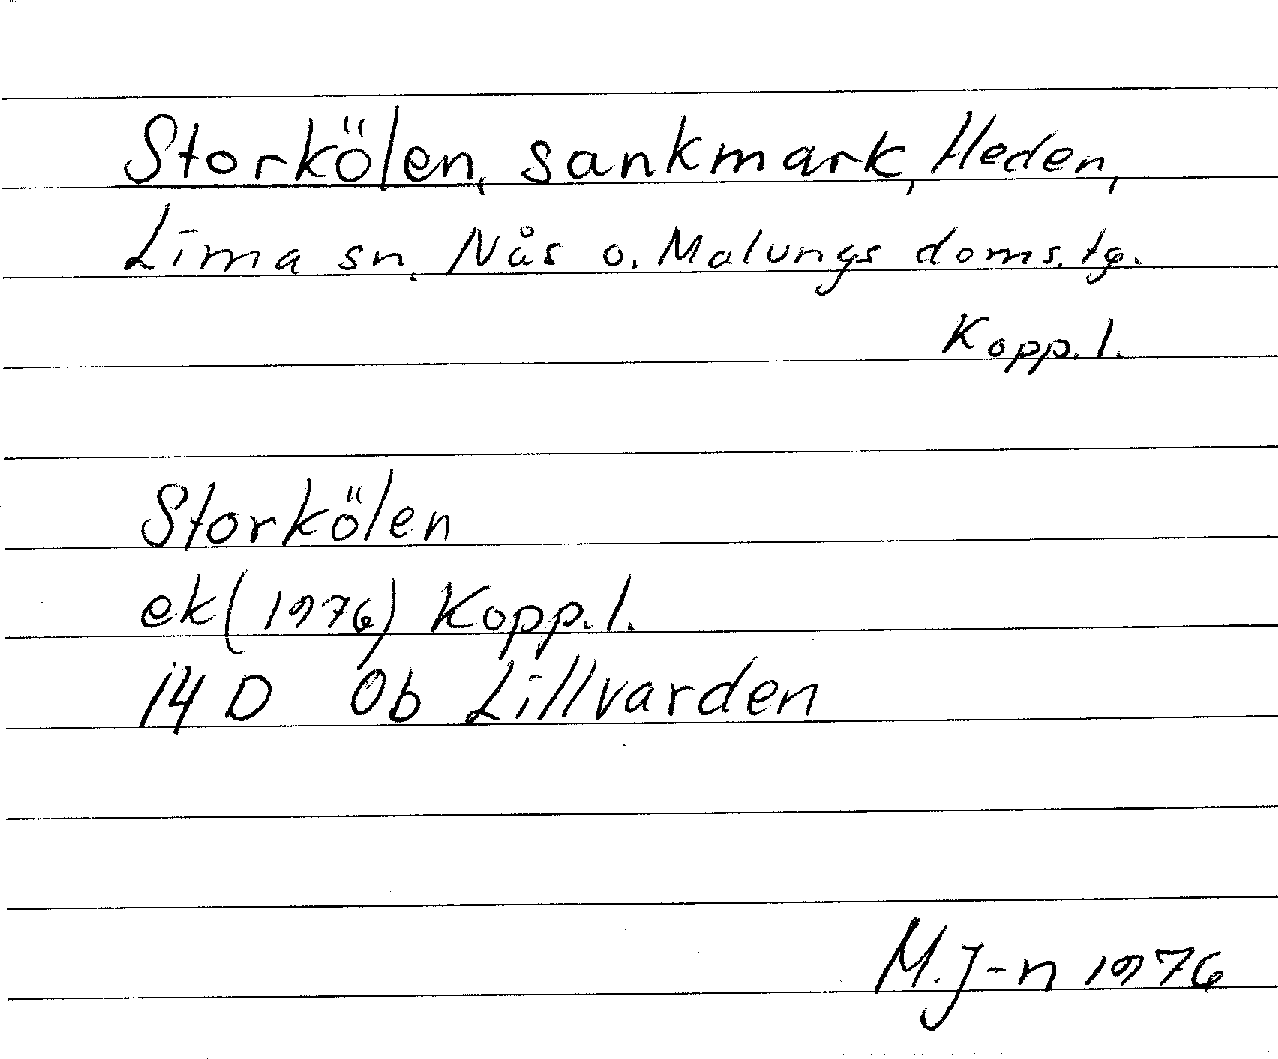 Storkölen, sankmark, Heden,
Lima sn. Nås o. Malungs doms. tg.
Kopp. l.
Storkölen
ek (1976) Kopp. l.
14 D Ob Lillvarden
M. J-n 1976